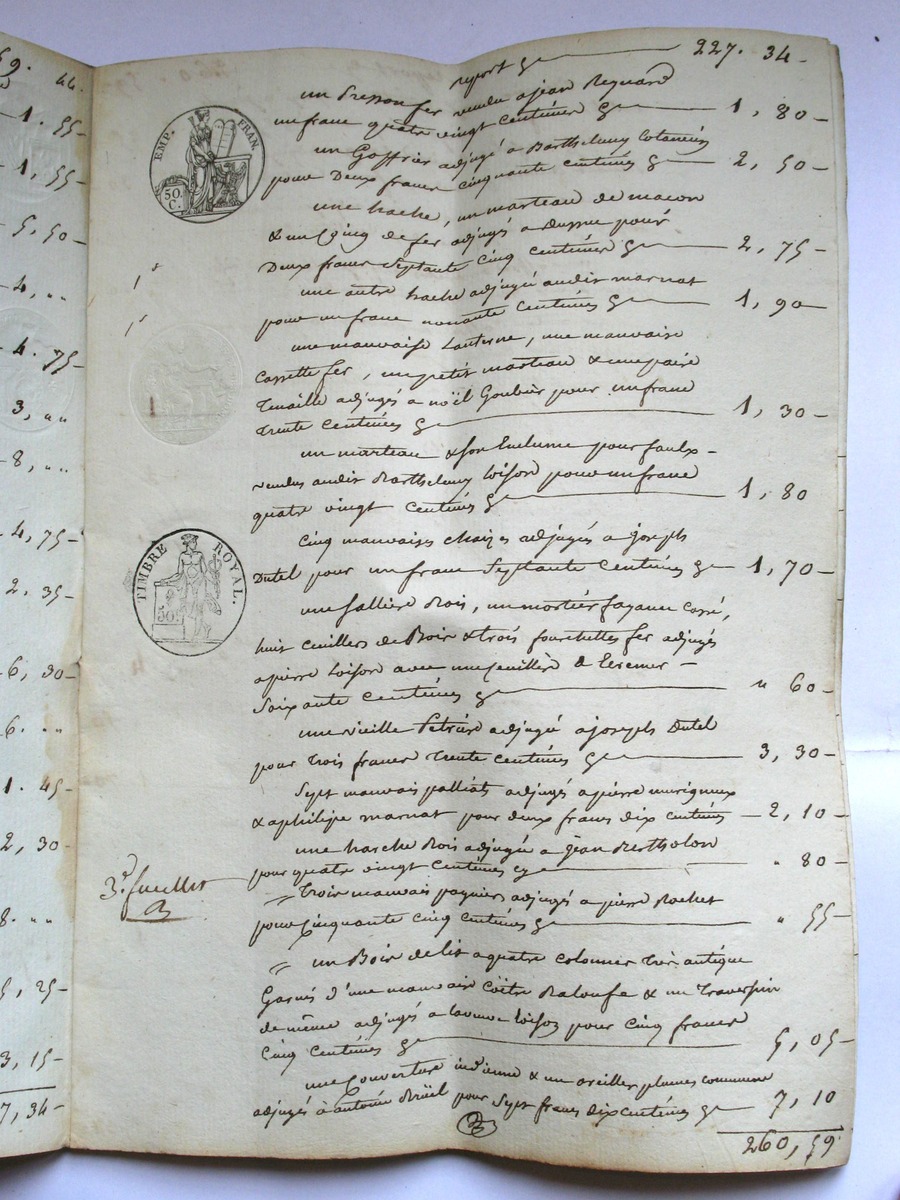 report 227. 34
un Presson fer vendu a jean Reynard
un franc quatre vingt centimes 1, 80
un Goffrier adjugé a Barthelemy
pour Deux francs cinquante centimes 2, 50
une hache, un marteau de macon
& un coing de fer adjugés a pour
Deux francs Septante Cinq Centimes 2, 75
une autre hache adjugée audit marnat
pour un franc nonante Centimes 1, 90
une mauvaise Lanterne, une mauvaise
Cassette fer, un petit marteau & une paire
Tenaille adjugés a noël Goubier pour un franc
trente Centimes 1, 30
un marteau & son Enclume pour faulx
vendus audit Barthelemy Loison pour un franc
quatre vingt Centimes 1, 80
Cinq mauvaises chaizes adjugés a joseph
Dutel pour un franc Septante Centimes 1, 70
une Sallière Bois, un mortier fayance cassé,
huit cuillers de Bois & trois fourchettes fer adjugés
a pierre Loison avec une
Soixante Centimes " 60
une vieille Petrière adjugée a joseph Dutel
pour trois francs trente Centimes 3, 30
Sept mauvais palliats adjugés a pierre murigneux
& a philipe marnat pour deux francs dix centimes 2, 10
une harche Bois adjugée a jean Bertholon
pour quatre vingt Centimes " 80
Trois mauvais pagniers adjugés a pierre Rochet
pour Cinquante Cinq Centimes " 55
un Bois de lit a quatre colonnes très antique
Garnis d'une mauvaise Coëtre Baloufe & un Traversin
de même adjugés a la veuve Loison pour Cinq francs
Cinq Centimes 5, 05
une Couverture indienne & un oreiller plumes commune
adjugés à antoine Bruël pour Sept francs dix centimes 7, 10
260, 59
EMP. FRAN.
50. C.
TIMBRE ROYAL.
50
3e. feuillet
59.
44.
1. 55
1, 55
5, 50
4, "
4. 75
3, "
8, "
4, 75
2, 35
6, 30
6. "
1. 45
2, 30
8. "
5, 25
3, 15
7, 34